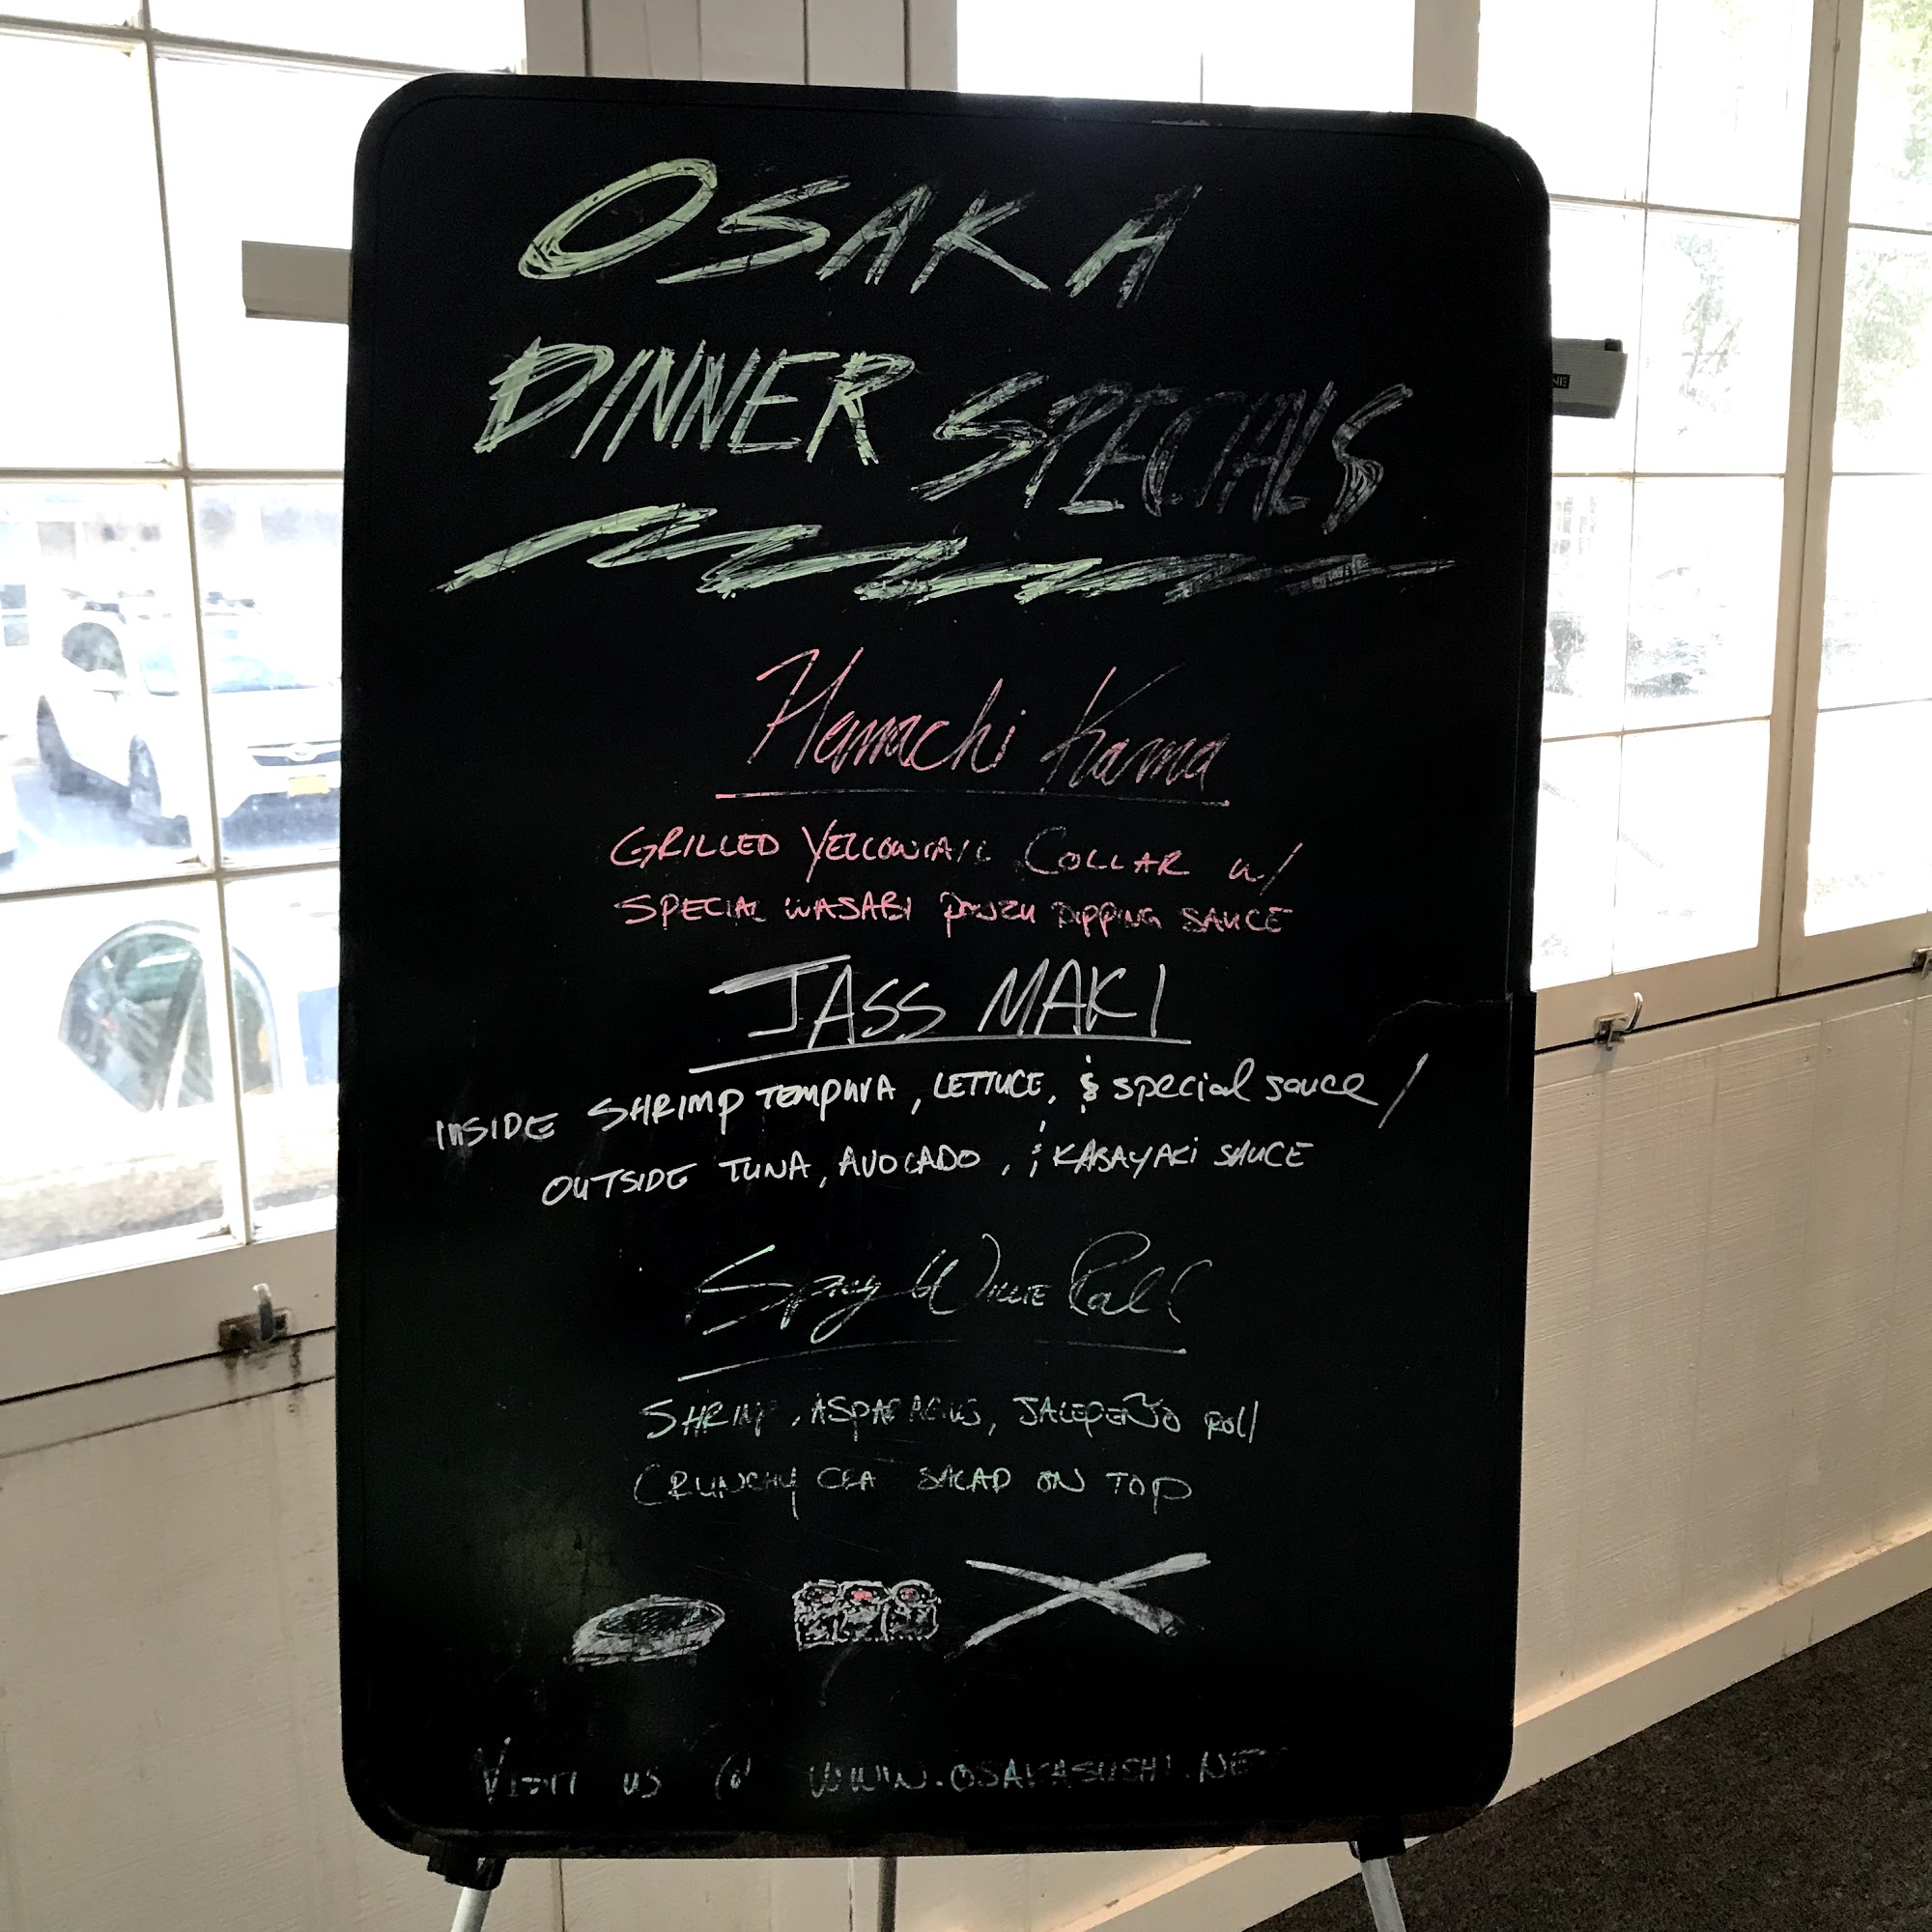 OSAKA
DINNER SPECIALS
Hamachi Kama
GRILLED YELLOWTAIL COLLAR W/
SPECIAL WASABI PONZU DIPPING SAUCE
JASS MAKI
INSIDE SHRIMP TEMPURA, LETTUCE, & special sauce /
OUTSIDE TUNA, AVOCADO, & KABAYAKI SAUCE
Spicy Willie Roll
SHRIMP, ASPARAGUS, JALEPEÑO ROLL
CRUNCHY SALAD ON TOP
VISIT US @ WWW.OSAKASUSHI.NET